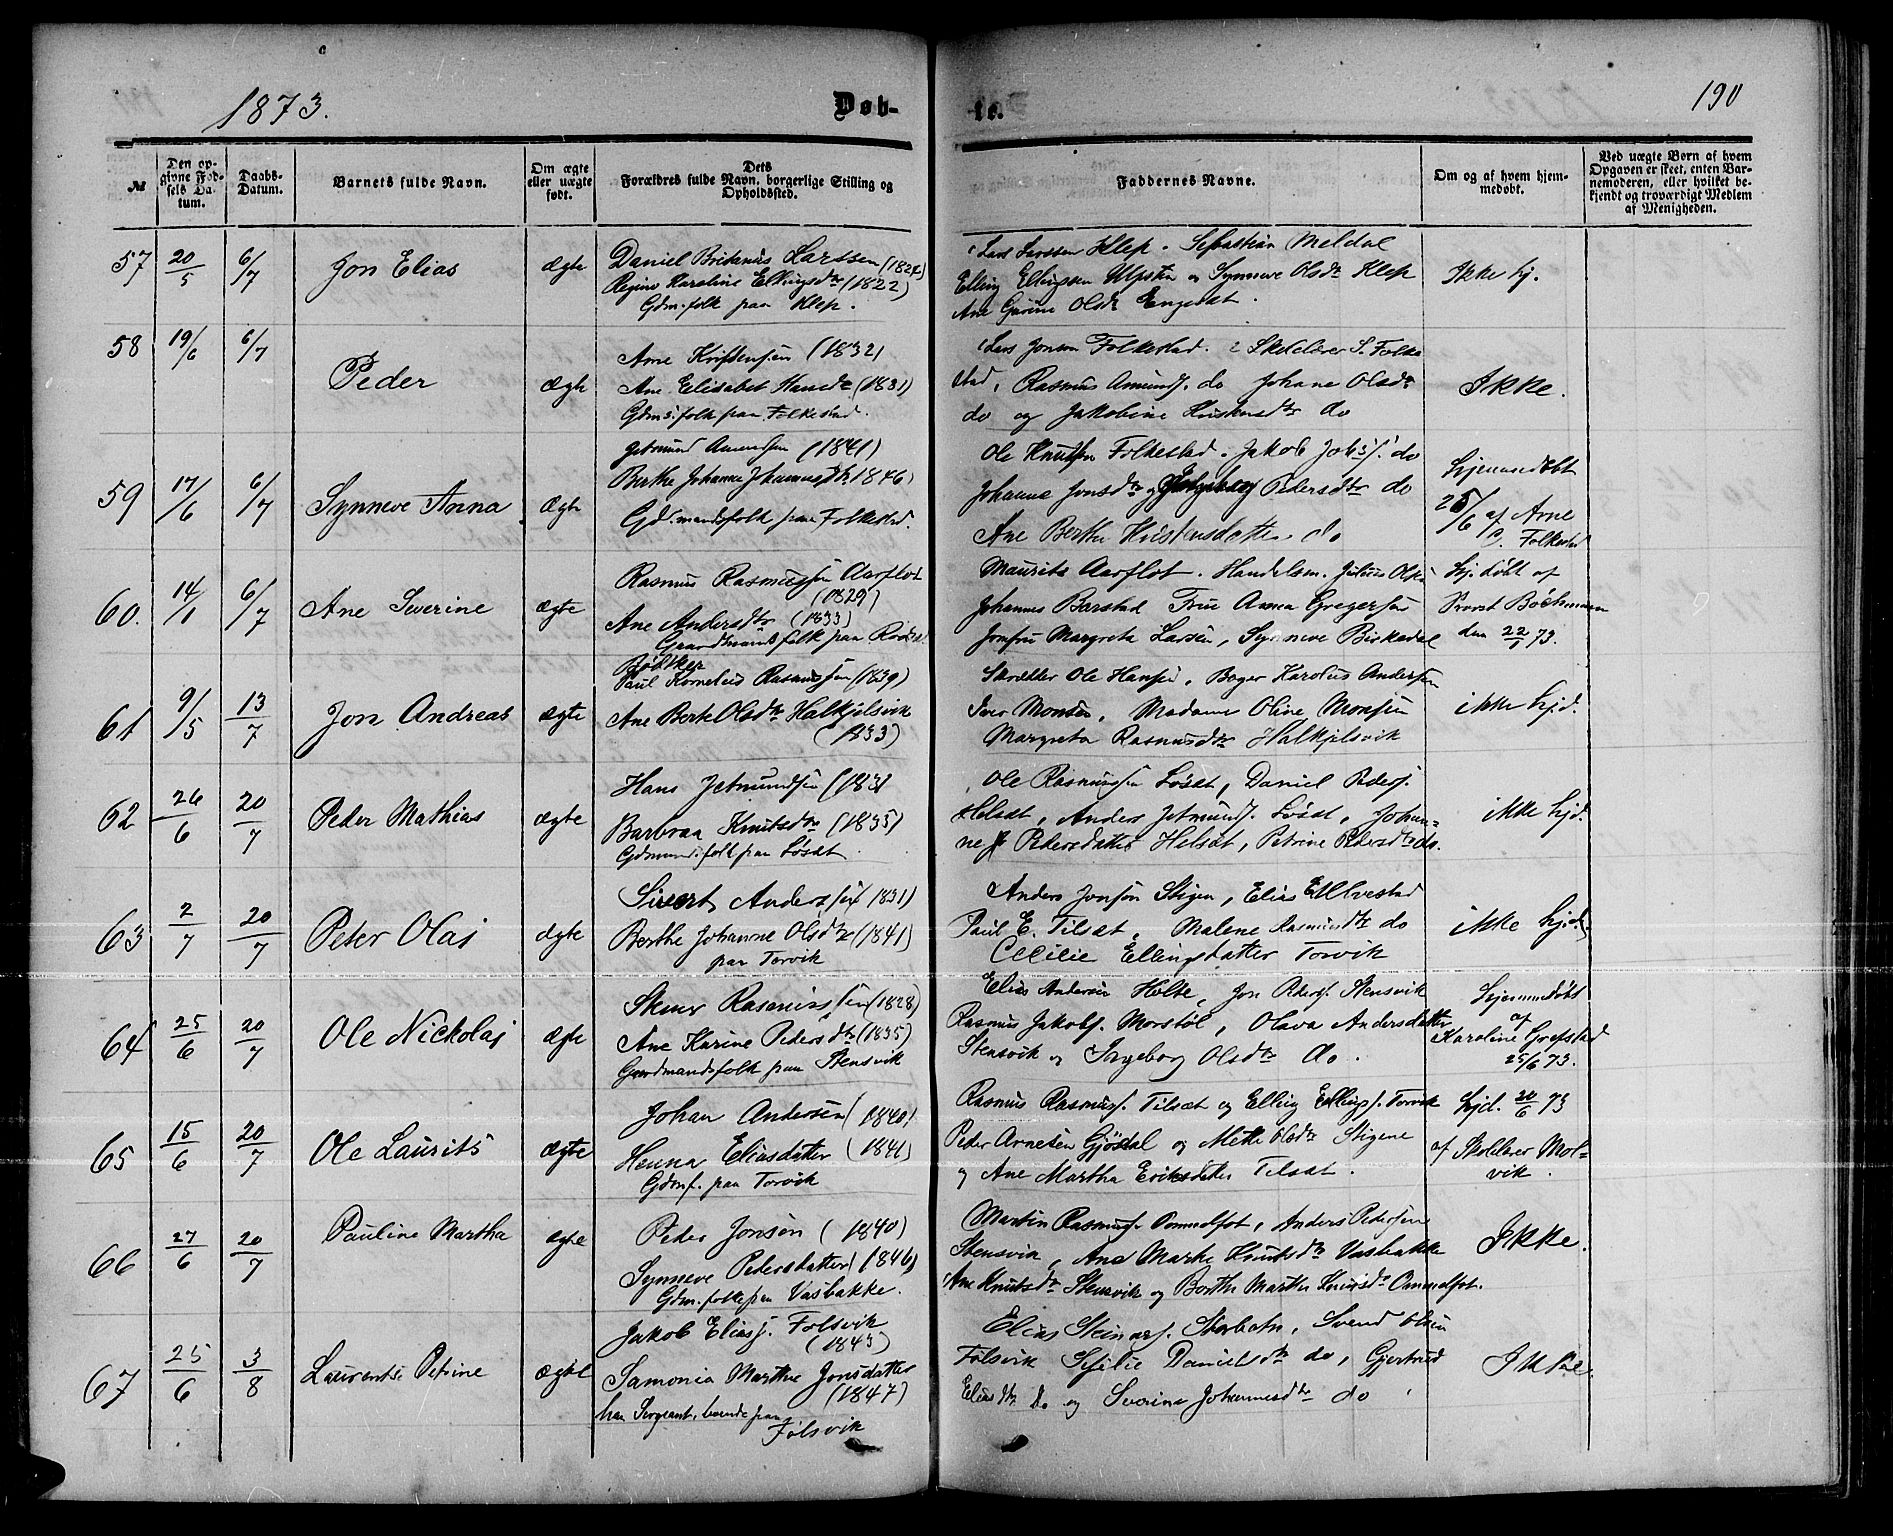 1873.
Døb-
te.
190
№
Den op-
givne Fød-
sels Da-
tum.
Daabs-
Datum.
Barnets fulde Navn.
Om ægte
eller uægte
født.
Dets
Forældres fulde Navn, borgerlige Stilling og
Opholdssted.
Faddernes Navne.
Om og af hvem hjem-
medøbt.
Ved uægte Børn af hvem
Opgaven er skeet, enten Bar-
nemoderen, eller hvilket be-
kjendt og troværdigt Medlem
af Menigheden.
57
20/5
6/7
Jon Elias
ægte
Daniel Larssen (1824)
Karoline Ellingsdtr (1822)
Gdm.folk paa Klep.
Lars Larssen Klep. Sebastian Meldal
Elling Ellingsen og Synneve Olsdtr Klep
Ane Olsdtr Engeset.
Ikke hj.
58
19/6
6/7
Peder
ægte
Arne Kristensen (1832)
Ane Elisabet Hansdtr (1831)
Gdms.folk paa Folkestad.
Lars Jonsen Folkestad. 2 Skolelærer S. Folke
stad, Rasmus Amunds. do Johane Olsdtr
do og Jakobine Kristensdtr do
Ikke.
59
17/6
6/7
Synneve Anna
ægte
Jetmund (1841)
Berthe Johanne Johannesdtr 1846)
Gd.mandsfolk paa Folkestad.
Ole Knutsen Folkestad. Jakob do
Johanne Jonsdtr og Pedersdtr do
Ane Berthe Kristensdatter do
hjemmedøbt
25/6 af Arne
Folkestad
60.
14/1
6/7
Ane Severine
ægte
Rasmus Rasmussen Aarflot
(1829)
Ane Andersdtr (1833)
Gaardmandsfolk paa
Maurits Aarflot. Handelsm. Julius Olsen
Johannes Barstad Frue Anna Gregersen
Jomfru Margreta Larsen, Synneve Birkedal
hj. døbt af
Provst Bøckmann
den 22/1 73.
61
9/5
13/7
Jon Andreas
ægte
Bødtker
Paul Kornelius Rasmussen (1839)
Ane Berte Olsdtr Halkjelsvik
(1833)
Skrædder Ole Hansen, Bager Karolus Andersen
Iver Monsen, Madame Oline Monsen
Margreta Rasmusdtr Halkjelsvik
ikke hjd.
62
26/6
20/7
Peder Mathias
ægte
Hans Jetmundsen (1831
Barbraa Knutsdtr (1835)
Gdmands.folk paa Løset.
Ole Rasmussen Løset, Daniel Peders.
Helset, Anders Jetmunds. Løset, Johan-
ne Pedersdatter Helset, Petrine Pedersdtr do.
ikke hjd.
63
2/7
20/7
Peter Olai
ægte
Sivert Anderssen 1831)
Berthe Johanne Olsdtr (1841)
paa Torvik
Anders Jonsen Stigen, Elias E Ulvestad
Paul E. Tilset, Malene Rasmusdtr do
Cecilie Ellingsdatter Torvik
ikke hjd.
64
25/6
20/7
Ole Nickolai
ægte
Rasmussen (1828)
Ane Karine Pedersdtr (1835)
Gaardmandsfolk paa Stensvik
Elias Andersen Holte, Jon Peders. Stensvik
Rasmus Jakobs. Morstøl, Olava Andersdatter
Stensvik og Ingeborg Olsdtr do.
hjemmedøbt
af
Karoline Grepstad
25/6 73.
65
15/6
20/7
Ole Laurits
ægte
Johan Andersen (1840)
Henna Eliasdatter (1841)
Gdmf. paa Torvik
Rasmus Rasmuss. Tilset og Elling Ellings. Torvik
Peder Arnesen Gjøsdal og Mette Olsdtr Stigene
og Ane Martha Eriksdatter Tilset.
hjd. 20/6 73
af Skolelærer Mol-
vik.
66
27/6
20/7
Pauline Martha
ægte
Peder Jonsen (1840)
Synneve Pedersdatter (1846)
Gdm.folk paa Vasbakke.
Martin Rasmuss. Ommelfot, Anders Pedersen
Stensvik, Ane Marte Knutsdtr Vasbakke
Ane Knutsdtr Stensvik og Berthe Marthe Knutsdtr Ommelfot.
Ikke.
67
25/6
3/8
Laurentse Petrine
ægte
Jakob Eliass. Følsvik
(1843)
Samonia Marthe Jonsdatter
(1847)
han Sergeant, boende paa
Følsvik
Elias Steinars. Storbotn, Svend Olsen
Følsvik Sefilie Danielsdtr do, Gjertrud
Eliasdtr do og Severine Johannesdtr do
Ikke.